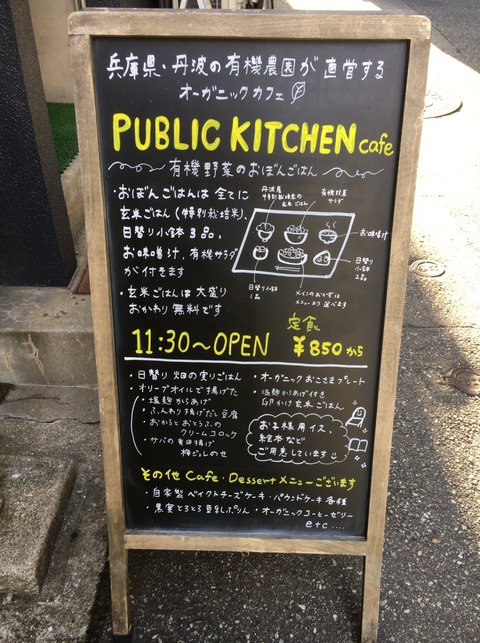 兵庫県・丹波の有機農園が直営する
オーガニックカフェ
PUBLIC KITCHEN cafe
有機野菜のおぼんごはん
おぼんごはんは全てに
玄米ごはん(特別栽培米)、
日替り小鉢3品、
お味噌汁、有機サラダ
が付きます
・玄米ごはんは大盛り
おかわり無料です
丹波産
特別栽培米の
玄米ごはん
有機野菜
サラダ
お味噌汁
日替り
小鉢
2品
日替り小鉢
1品
メインのおかずは
メニューより選べます
定食
11:30〜OPEN ¥850から
・日替り 畑の実りごはん
・オリーブオイルで揚げた
・塩麹からあげ
・ふんわり揚げだし豆腐
・おからとおとうふの
クリームコロッケ
・サバの竜田揚げ
梅ジュレのせ
・オーガニックおこさまプレート
・塩麹からあげ付き
卵かけ玄米ごはん
お子様用イス、
絵本など
ご用意しています
その他 Cafe・Dessertメニューございます
・自家製 ベイクドチーズケーキ・パウンドケーキ各種
・黒実とろとろ豆乳ぷりん・オーガニックコーヒーゼリー
etc....